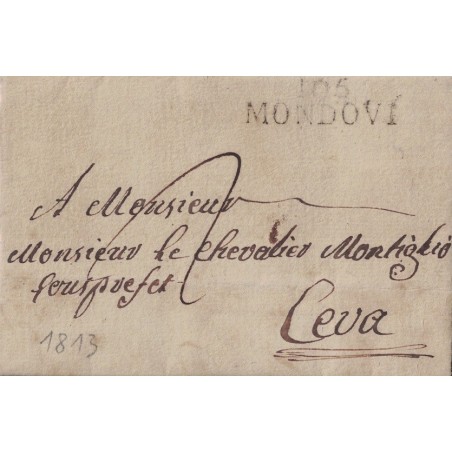 105
MONDOVI
A Monsieur
Monsieur le Chevalier Montiglio
Sousprefet
Ceva
1813